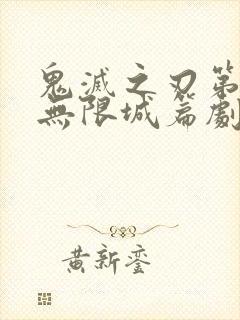 鬼滅之刃第
無限城篇劇
黃新鑾